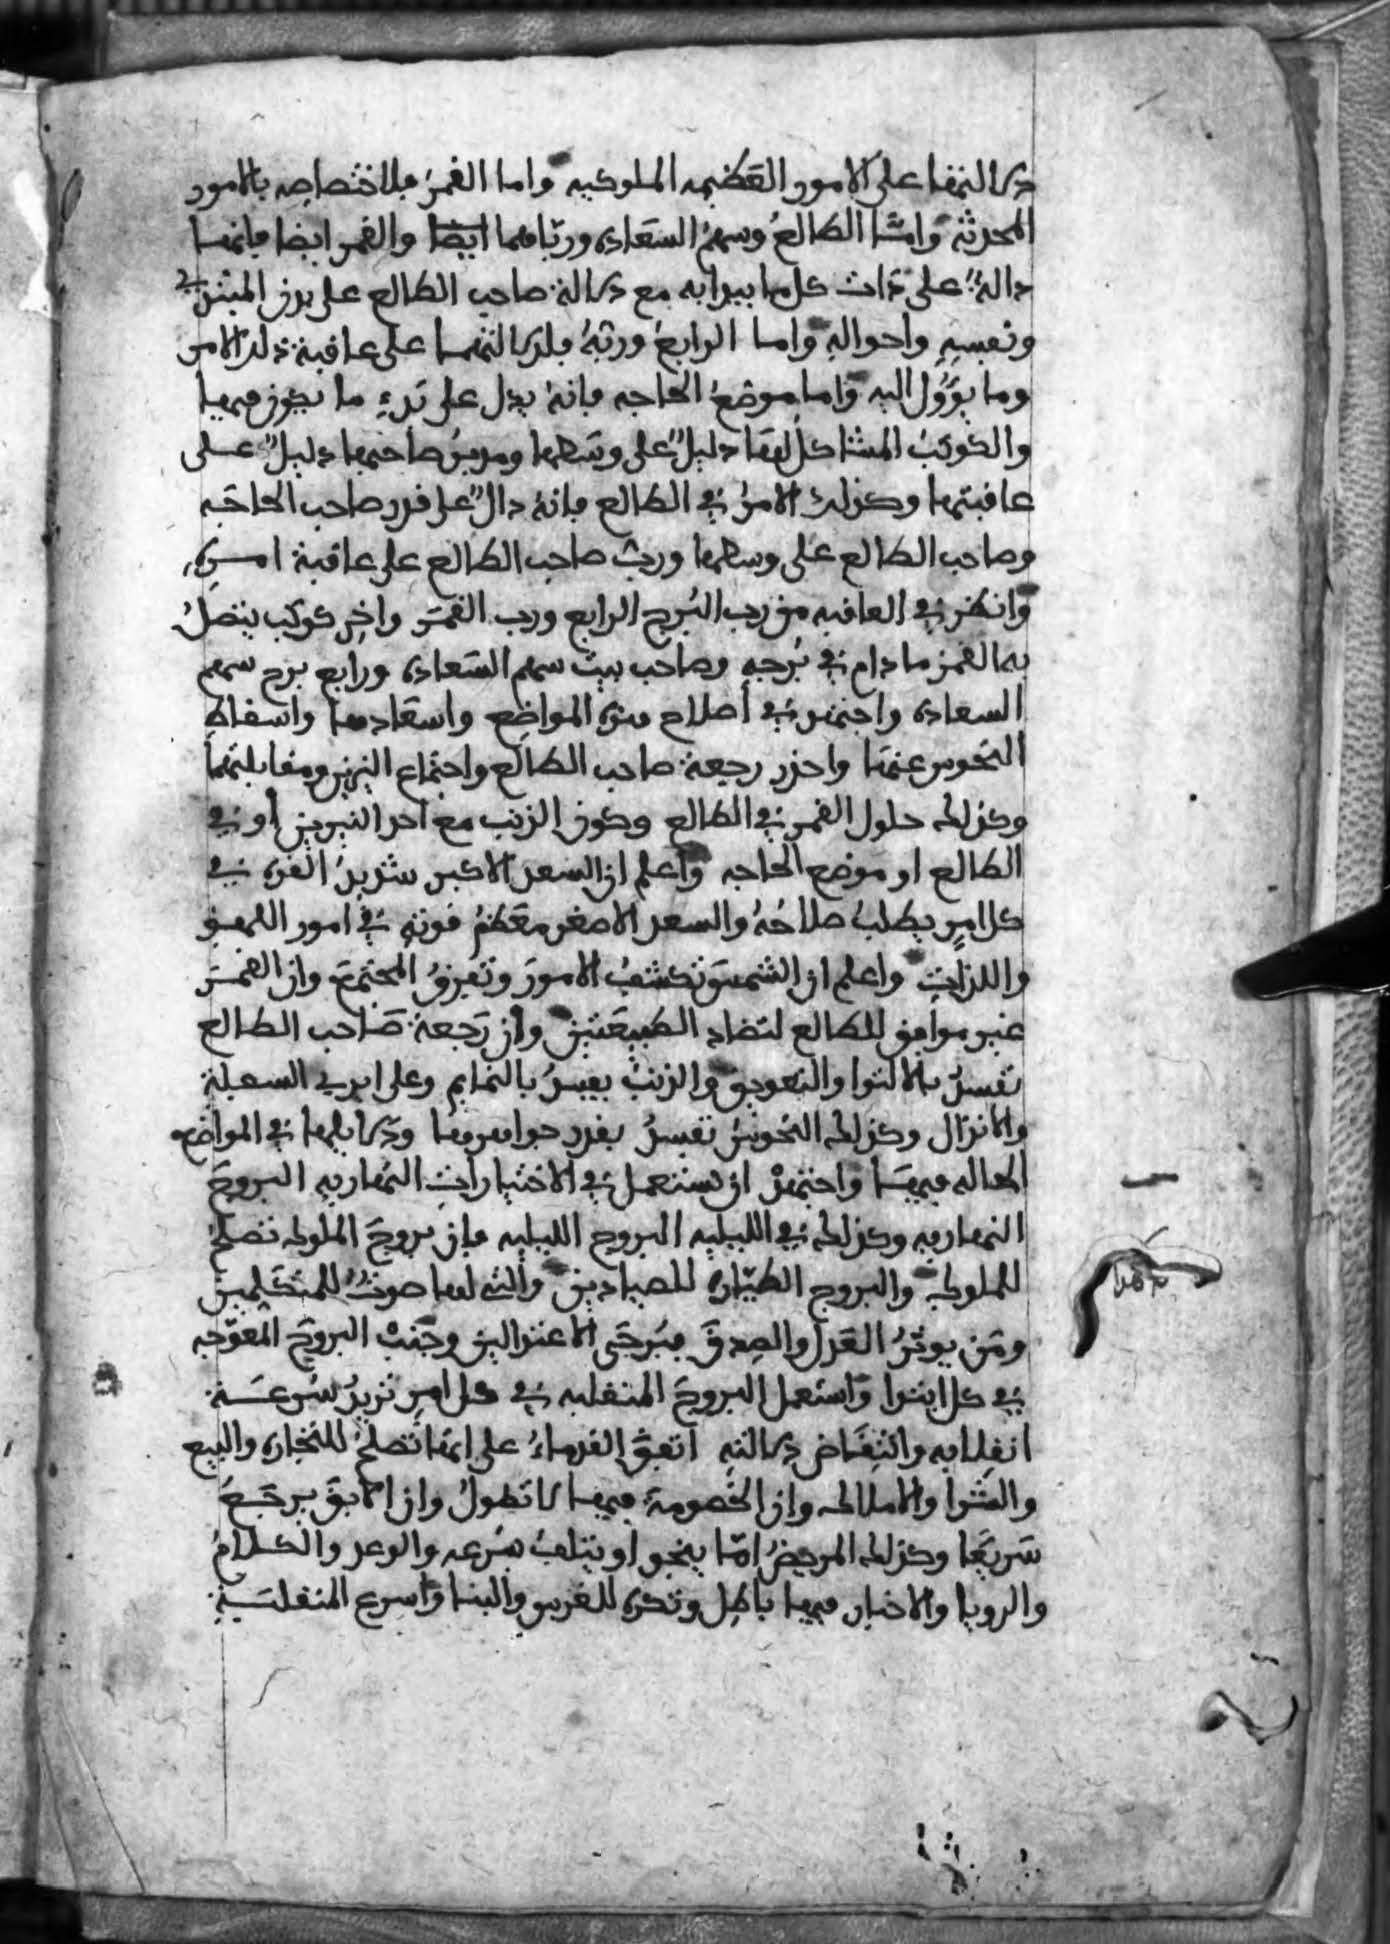 دلالتها على الامور العظيمه الملوكيه واما القمر فلاختصاصه بالامور
المحدثه واما الطالع وسهم السعاده وربّاهما ايضا والقمر ايضا فانهما
دالة على ذات كل ما يبدا به مع دلالة صاحب الطالع على بدن المبتدي
ونفسه واحواله واما الرابع وربه فلدلالتهما على عاقبة ذلك الامر
وما يؤول اليه واما موضع الحاجه فانه يدل على بدء ما يكون فيها
والكوكب المشاكل لها دليل على وسطها وبيت صاحبها دليل على
عاقبتها وكذلك الامر في الطالع فانه دال على قدر صاحب الحاجه
وصاحب الطالع على وسطها وربّ صاحب الطالع على عاقبة امره
وانظر في العاقبه من رب البرج الرابع ورب القمر واخر كوكب يتصل
به القمر ما دام في برجه وصاحب بيت سهم السعاده ورابع برج سهم
السعاده واجتهد في اصلاح هذه المواضع واسعادها واسقاط
النحوس عنها واحذر رجعة صاحب الطالع واجتماع النيرين ومقابلتهما
وكذلك حلول القمر في الطالع وكون الذنب مع احد النيرين او في
الطالع او موضع الحاجه واعلم ان السعد الاكبر شديد القوه في
كل امر يطلب صلاحه والسعد الاصغر معظم قوته في امور اللهو
واللذات واعلم ان الشمس تكشف الامور وتفرق المجتمع وان القمر
غير موافق للطالع لتضاد الطبيعتين وان رجعة صاحب الطالع
تفسد بالالتوا والتعويق والذنب يفسد بالنمايم وعلى ايدي السفلة
والانذال وكذلك النحوس تفسد بقدر جواهرها ودلايلها في المواضع
الحاله فيها واجتهد ان يستعمل في الاختيارات النهاريه البروج
النهاريه وكذلك في الليليه البروج الليليه فان بروج الملوك تصلح
للملوك والبروج الطياره للصيادين والتي لها صوت للمتكلمين
ومن يوثر العدل والصدق فبرجي الاعتدالين وجنّب البروج المعوّجه
في كل ابتدا واستعمل البروج المنقلبه في كل امر تريد سرعة
انقلابه وانتقاض دلالته اتفق القدماء على انها تصلح للتجاره والبيع
والشرا والاملاك وان الخصومة فيها لا تطول وان الابق يرجع
سريعا وكذلك المريض امّا ينجو او يتلف بسرعه والوعد والكلام
والرويا والاخبار فيها باطل وتكره للغرس والبنا واسرع المنقلبة